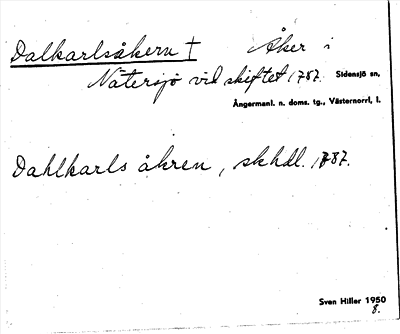 Dalkarlsåkern † Åker i
Nätersjö vid skiftet 1787. Sidensjö sn,
Ångermanl. n. doms. tg., Västernorrl, l.
Dahlkarls åkren, skhdl. 1787.
Sven Hiller 1950
8.